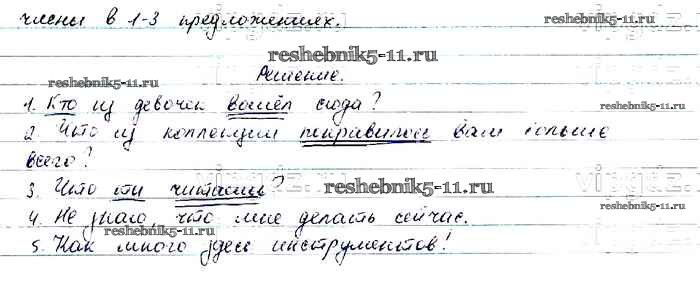 члены в 1-3 предложениях.
Решение.
1. Кто из девочек вошёл сюда?
2. Что из коллекции понравилось вам больше
всего?
3. Что ты читаешь?
4. Не знаю, что мне делать сейчас.
5. Как много здесь инструментов!
reshebnik5-11.ru
reshebnik5-11.ru
reshebnik5-11.ru
reshebnik5-11.ru
reshebnik5-11.ru